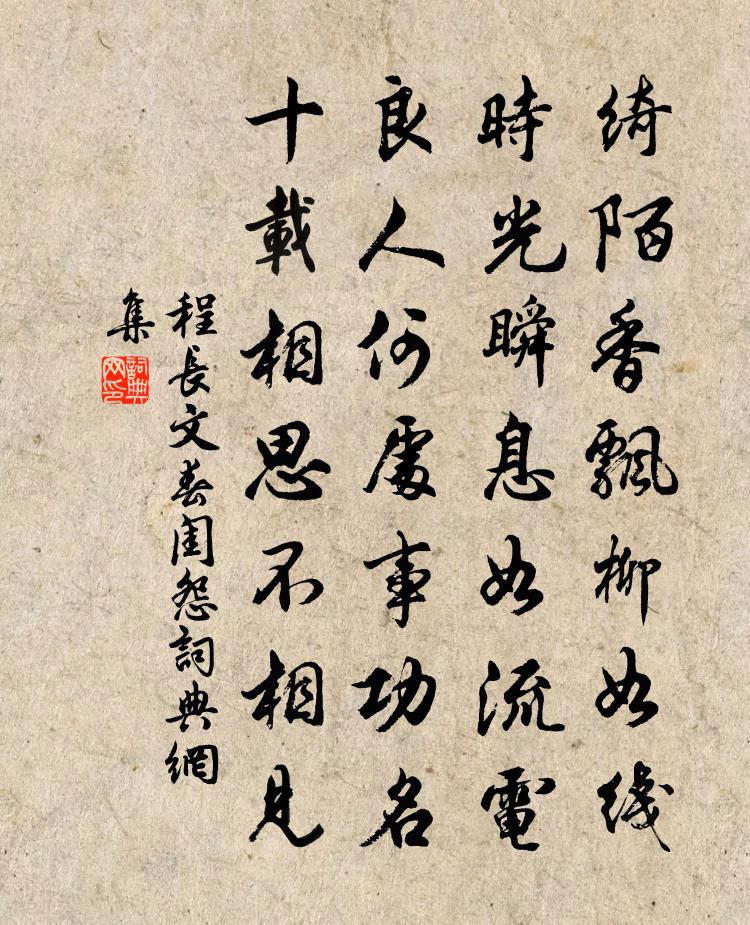 綺陌香飄柳如綫
時光瞬息如流電
良人何處事功名
十載相思不相見
程長文春閨怨詞典網
集
詞典网印